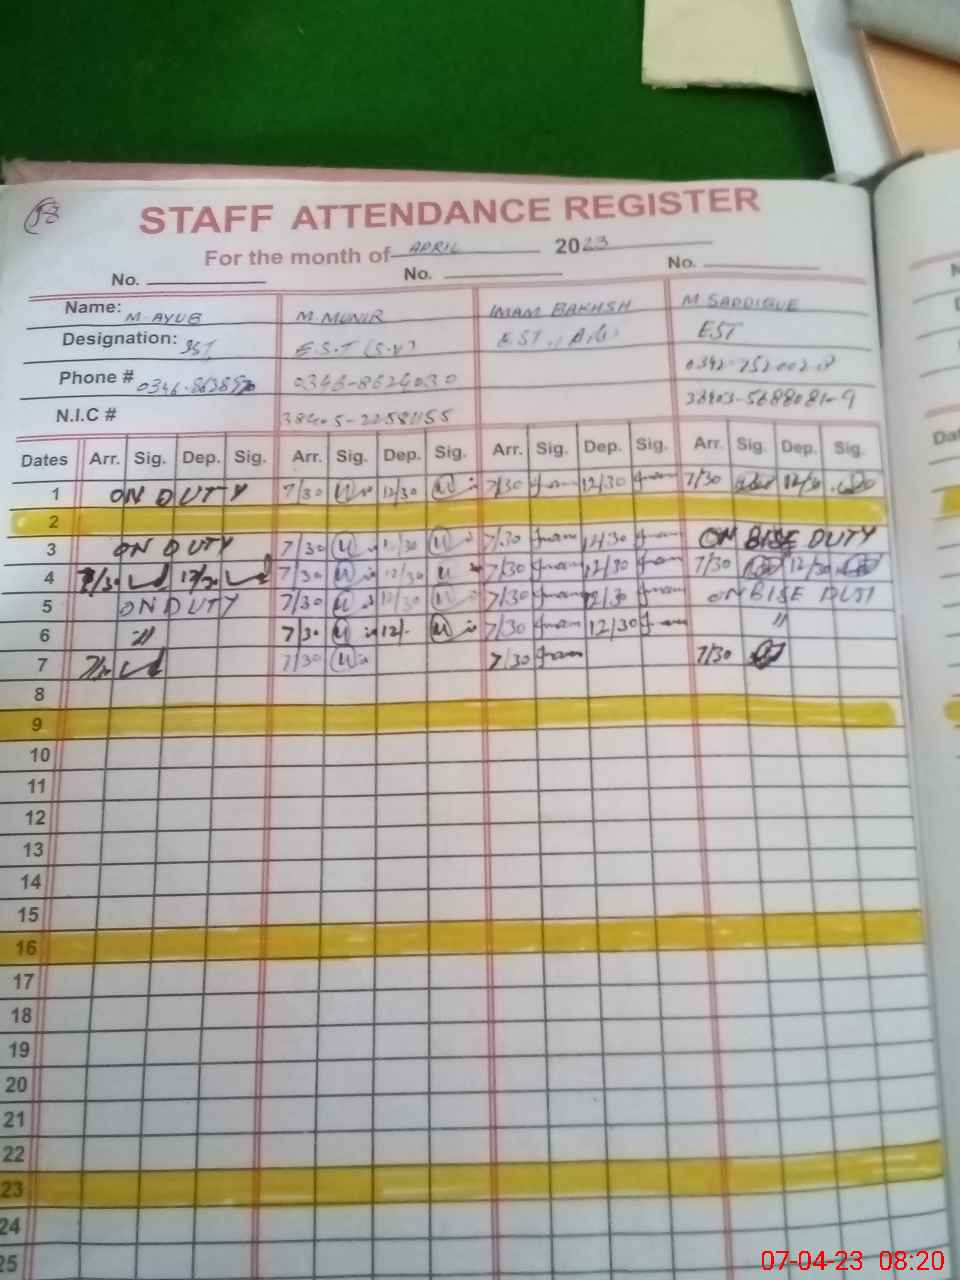 58
STAFF ATTENDANCE REGISTER
For the month of APRIL 2023
No. No. No.
Name: M. AYUB M. MUNIR IMAM BAKHSH M SADDIQUE
Designation: SST E.S.T (S.V) EST EST
Phone # 0346-8624030
N.I.C # 38403-5688081-9
Dates Arr. Sig. Dep. Sig. Arr. Sig. Dep. Sig. Arr. Sig. Dep. Sig. Arr. Sig. Dep. Sig.
1 ON DUTY 7/30 12/30 7/30 12/30 7/30 12/30
2
3 ON DUTY 7/30 12/30 7/30 12/30 ON BISE DUTY
4 7/30 12/30 7/30 12/30 7/30 12/30 7/30 12/30
5 ON DUTY 7/30 12/30 7/30 12/30 ON BISE DUTY
6 〃 7/30 12/- 7/30 12/30 〃
7 7/30 7/30 7/30 7/30
8
9
10
11
12
13
14
15
16
17
18
19
20
21
22
23
24
25
07-04-23 08:20